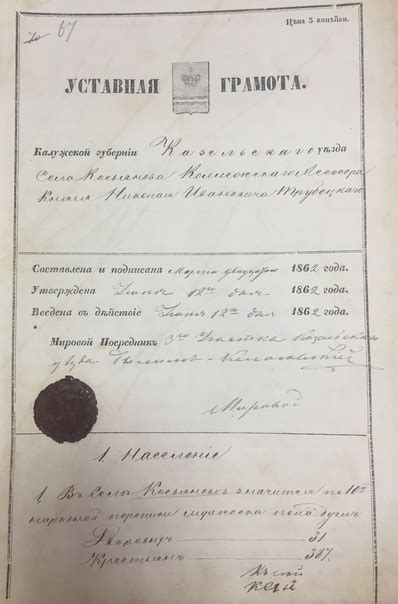 67
Цѣна 3 копѣйки.
УСТАВНАЯ ГРАМОТА.
Калужской губерніи Козельскаго уѣзда
Села Косьянова Коллежскаго Ассесора
Князя Николая Ивановича Трубецкаго
Составлена и подписана Марта 1862 года.
Утверждена Іюня 12го дня 1862 года.
Введена въ дѣйствіе Іюня 12го дня 1862 года.
Мировой Посредникъ 3го Участка Козельскаго
уѣзда
Мировой
1. Населеніе
1. Въ Селѣ Косьяновѣ значится по 10й
народной переписи мужеска пола душъ:
Дворовыхъ 31
Крестьянъ 387.